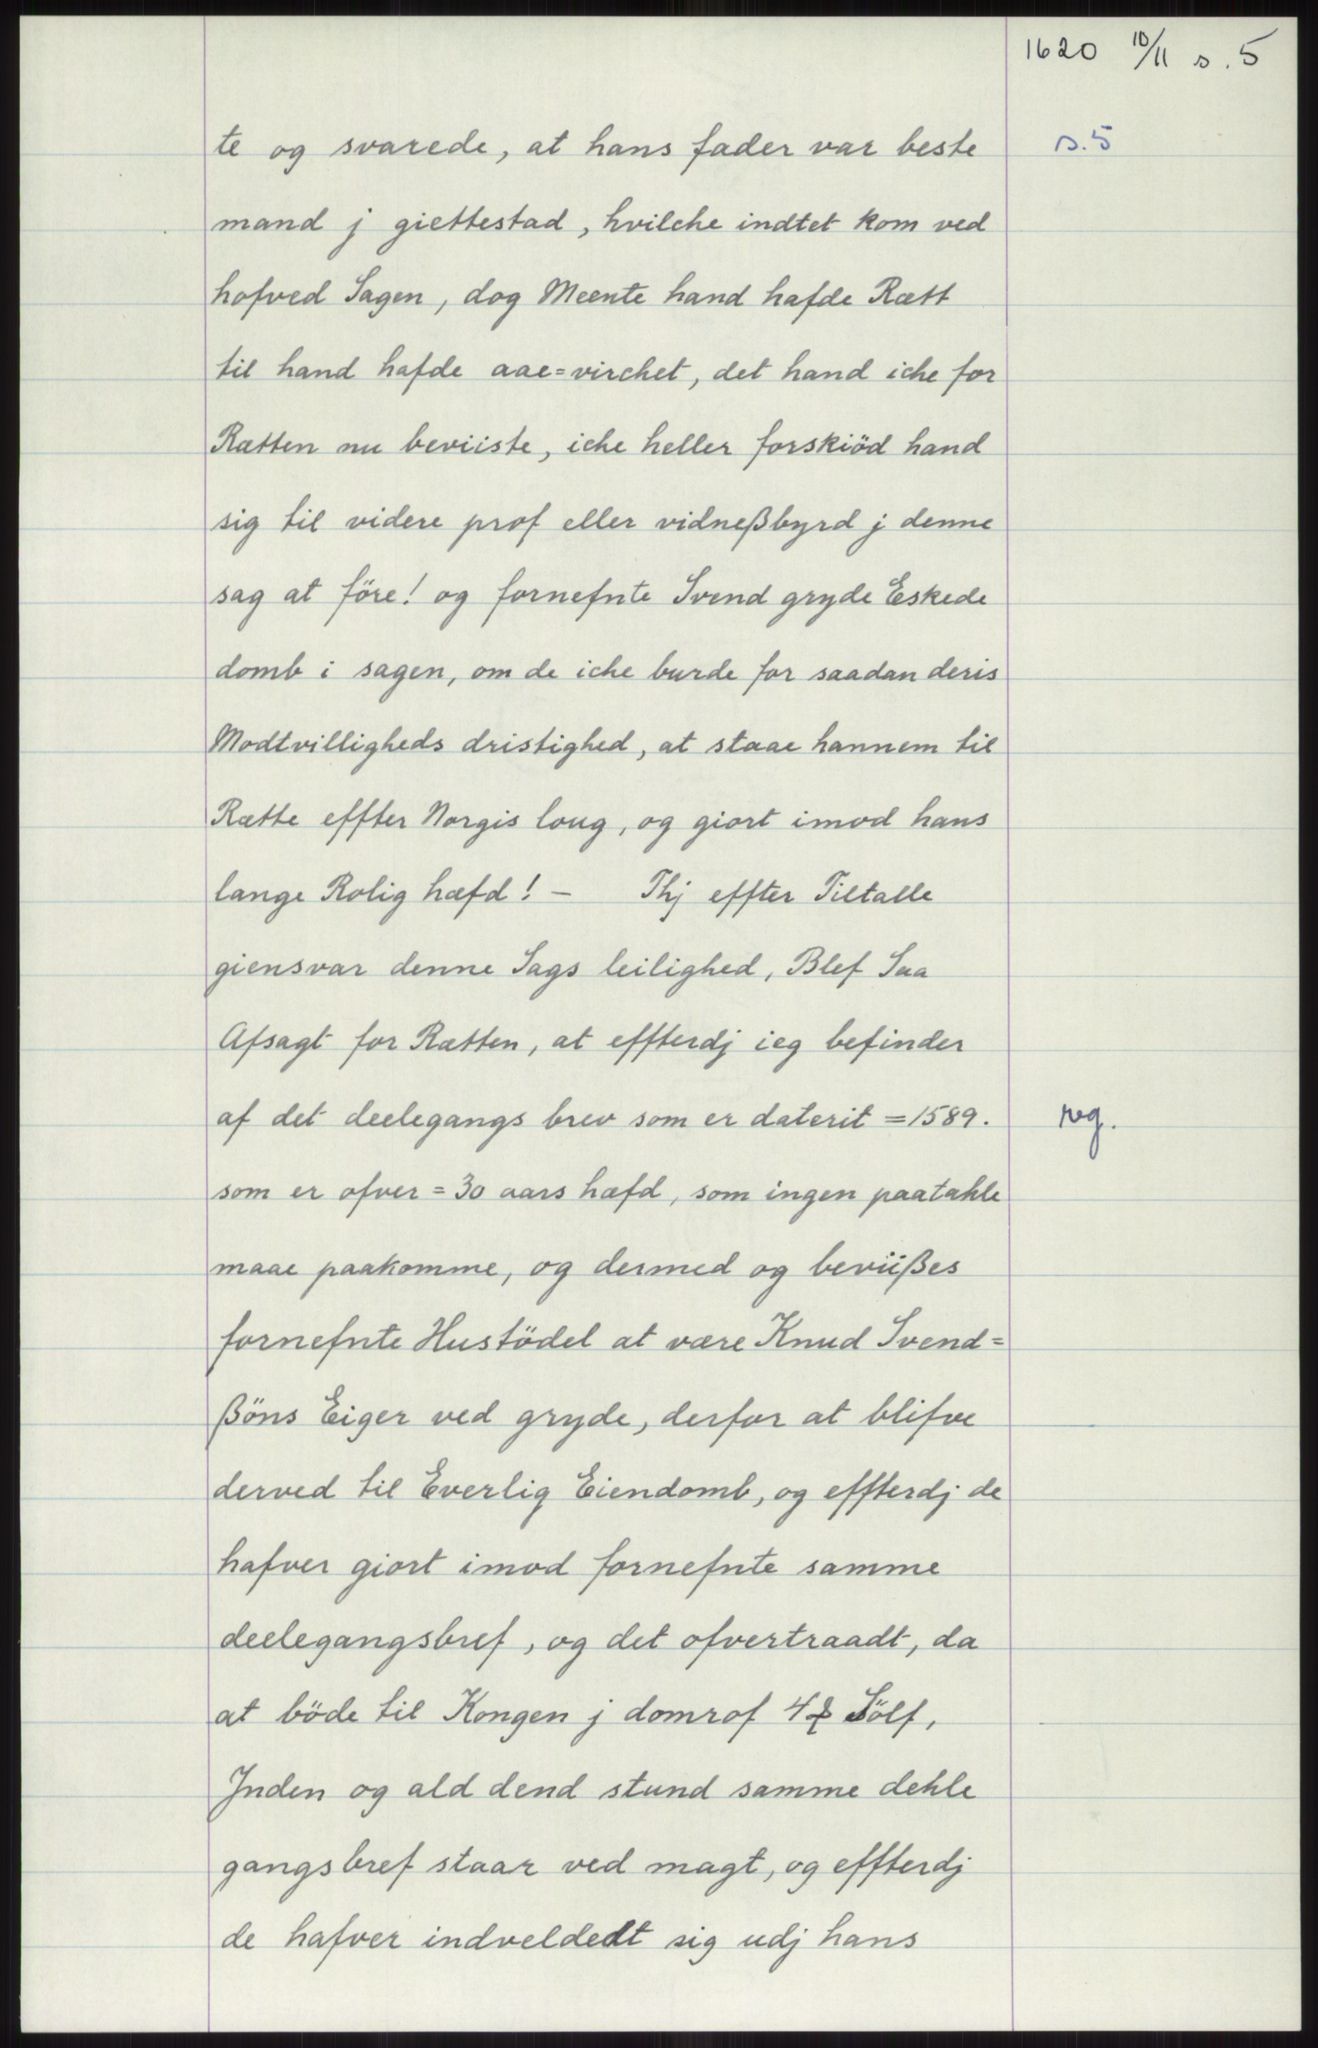 1620 10/11 s. 5
s. 5
te og svarede, at hans fader var beste
mand j giettestad, hvilche indtet kom ved
hofved Sagen, dog Meente hand hafde Rætt
til hand hafde aae=virchet, det hand iche for
Rætten nu beviiste, iche heller forskiöd hand
sig til videre prof eller vidneßbyrd j denne
sag at före! og fornefnte Svend gryde Eskede
domb i sagen, om de iche burde for saadan deris
Modtvilligheds dristighed, at staae hannem til
Rætte effter Norgis loug, og giort imod hans
lange Rolig hæfd! - Thj effter Tiltalle
giensvar denne Sags leilighed, Blef Saa
Afsagt for Rætten, at effterdj ieg befinder
af det deelegangs brev som er daterit = 1589.
reg.
som er ofver = 30 aars hæfd, som ingen paatahle
maae paakomme, og dermed og beviißes
fornefnte Hustödel at være Knud Svend=
ßöns Eiger ved gryde, derfor at blifve
derved til Everlig Eiendomb, og effterdj de
hafver giort imod fornefnte samme
deelegangsbref, og det ofvertraadt, da
at böde til Kongen j domrof 4 Sölf,
Jnden og ald dend stund samme dehle
gangsbref staar ved magt, og effterdj
de hafver indveldedt sig udj hans